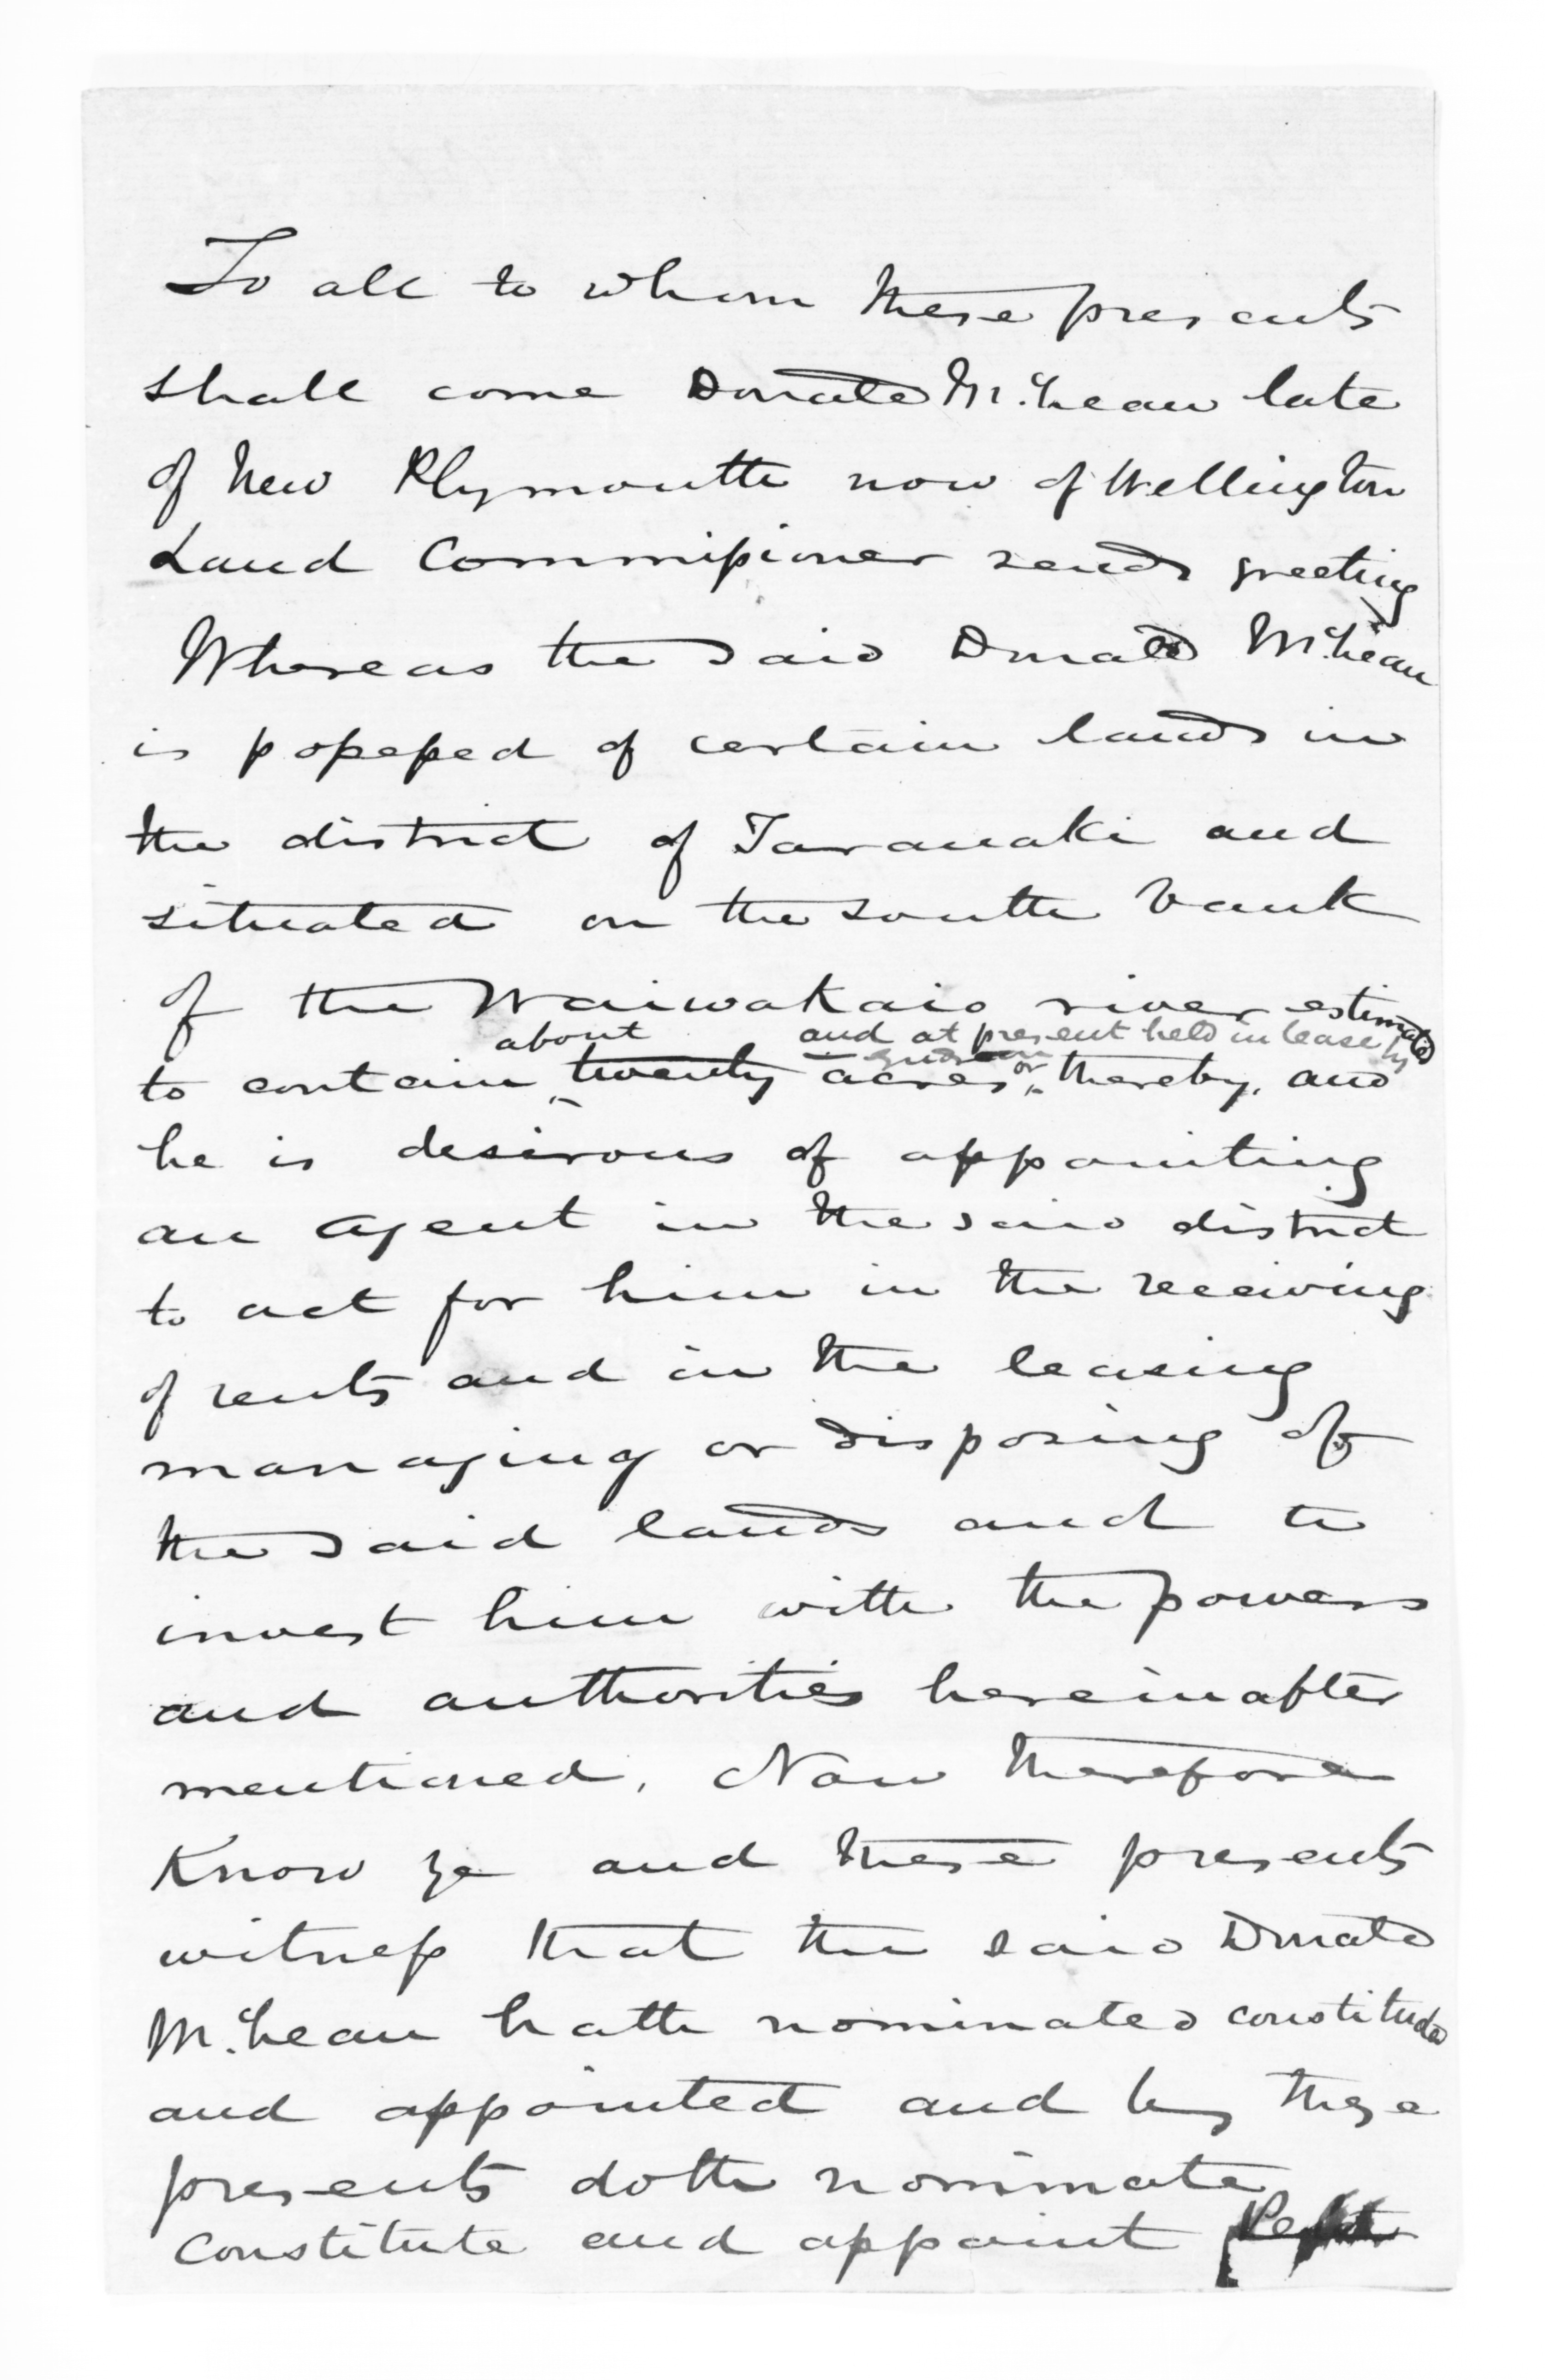 To all to whom these presents
shall come Donald McLean late
of New Plymouth now of Wellington
Land Commissioner sends greeting
Whereas the said Donald McLean
is possessed of certain lands in
the district of Taranaki and
situated on the south bank
of the Waiwakaio river estimated
about and at present held in lease by
to contain twenty acres or thereby, and
he is desirous of appointing
an agent in the said district
to act for him in the receiving
of rents and in the leasing
managing or disposing of
the said lands and to
invest him with the powers
and authorities hereinafter
mentioned, Now therefore
Know ye and these presents
witness that the said Donald
McLean hath nominated constituted
and appointed and by these
presents doth nominate
constitute and appoint